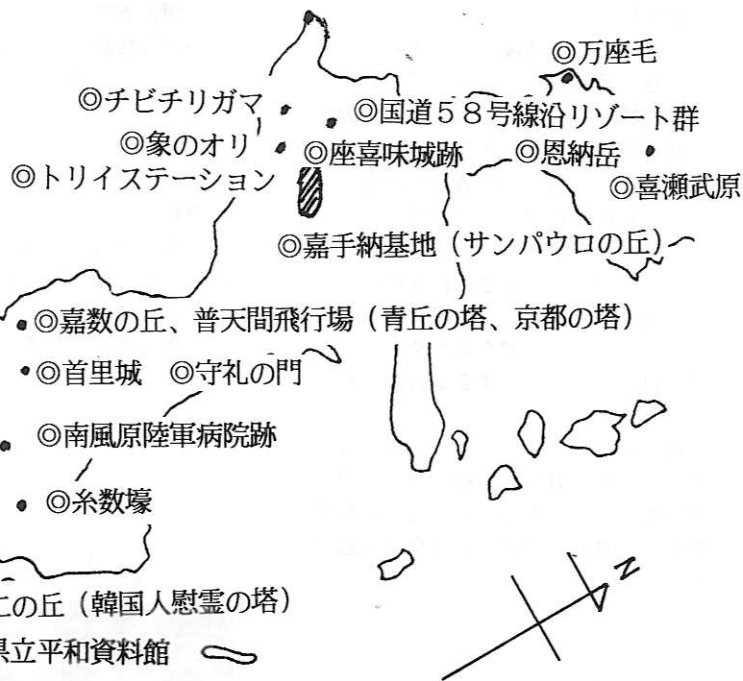 ◎万座毛
◎チビチリガマ
◎国道58号線沿リゾート群
◎象のオリ
◎座喜味城跡
◎恩納岳
◎トリイステーション
◎喜瀬武原
◎嘉手納基地(サンパウロの丘)
◎嘉数の丘、普天間飛行場(青丘の塔、京都の塔)
◎首里城 ◎守礼の門
◎南風原陸軍病院跡
◎糸数壕
の丘(韓国人慰霊の塔)
県立平和資料館
N